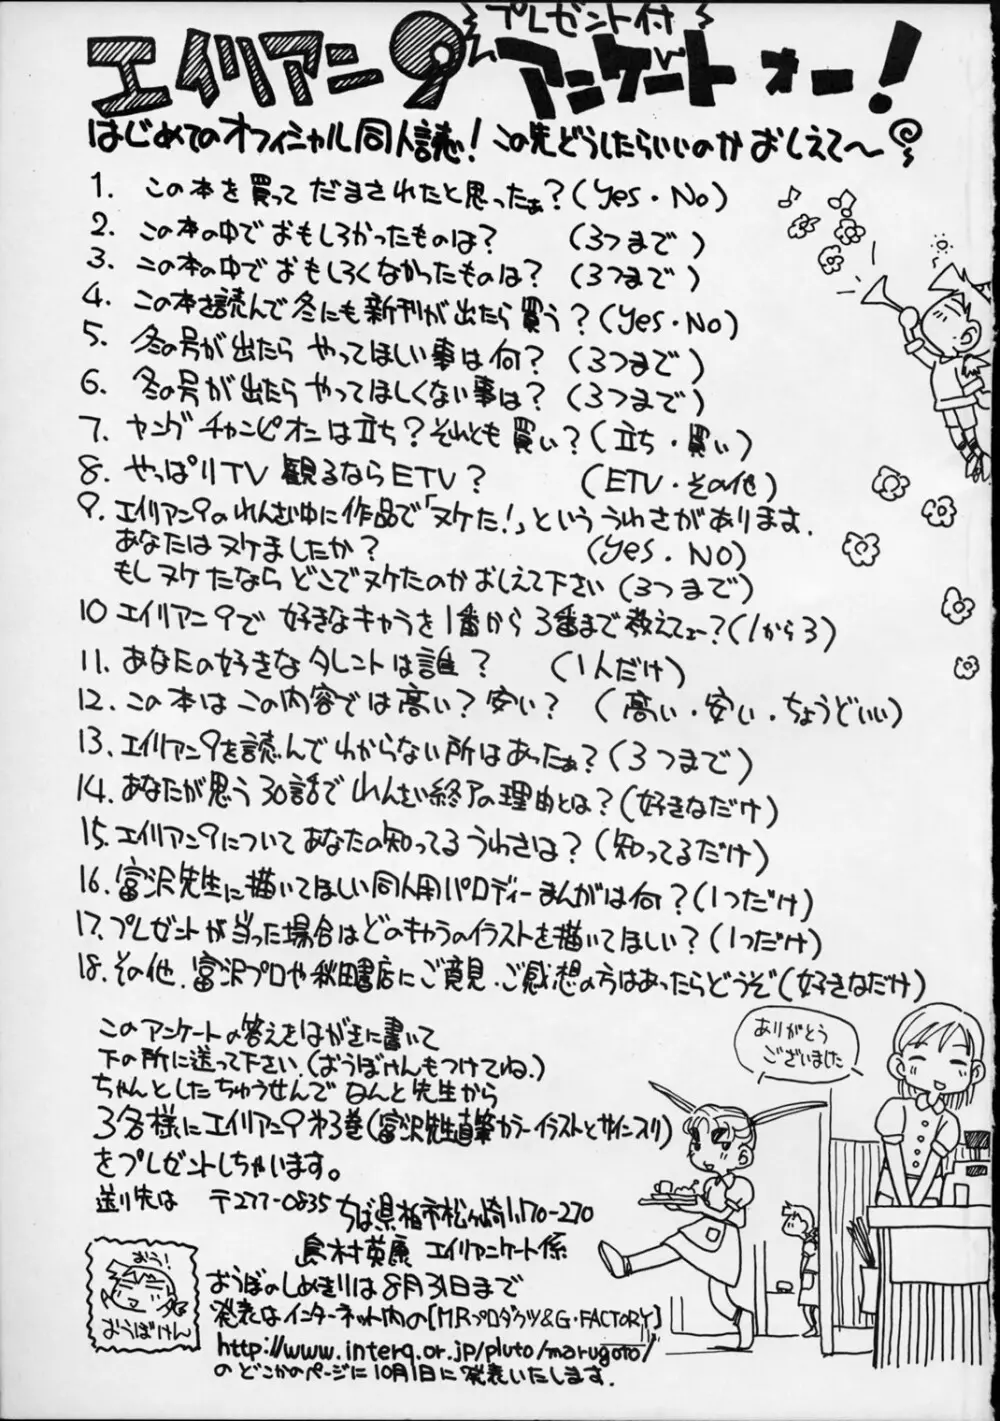 プレゼント付
エイリアン9 アンケートォー！
はじめてのオフィシャル同人誌！この先どうしたらいいのかおしえて〜
1. この本を買って だまされたと思ったぁ？(Yes・No)
2. この本の中でおもしろかったものは？ (3つまで)
3. この本の中でおもしろくなかったものは？ (3つまで)
4. この本を読んで冬にも新刊が出たら買う？(Yes・No)
5. 冬の号が出たら やってほしい事は何？ (3つまで)
6. 冬の号が出たら やってほしくない事は？ (3つまで)
7. ヤングチャンピオンは立ち？それとも買い？(立ち・買い)
8. やっぱりTV 観るならETV？ (ETV・その他)
9. エイリアン9のれんさい中に作品で「ヌケた！」といううわさがあります.
あなたはヌケましたか？ (Yes・NO)
もしヌケたなら どこでヌケたのか おしえて下さい (3つまで)
10 エイリアン9で 好きなキャラを1番から3番まで教えてェー？(1から3)
11. あなたの好きなタレントは誰？ (1人だけ)
12. この本はこの内容では高い？安い？ (高い・安い・ちょうどいい)
13. エイリアン9を読んでわからない所はあったぁ？(3つまで)
14. あなたが思う30話でれんさい終了の理由とは？(好きなだけ)
15. エイリアン9についてあなたの知ってるうわさは？(知ってるだけ)
16. 富沢先生に描いてほしい同人用パロディーまんがは何？(1つだけ)
17. プレゼントが当った場合はどのキャラのイラストを描いてほしい？(1つだけ)
18. その他. 富沢プロや秋田書店にご意見・ご感想の方はあったらどうぞ(好きなだけ)
このアンケートの答えをはがきに書いて
下の所に送って下さい.(おうぼけんもつけてね.)
ちゃんとしたちゅうせんでなんと先生から
3名様にエイリアン9第3巻(富沢先生直筆カラーイラストとサイン入り)
をプレゼントしちゃいます。
送り先は 〒277-0835 ちば県柏市松ヶ崎1170-270
島村英康 エイリアンケート係
おうぼのしめきりは8月31日まで
発表はインターネット内の[M.R.プロダクツ&G・FACTORY]
http://www.interq.or.jp/pluto/marugoto/
のどこかのページに10月1日に発表いたします.
おう！
おうぼけん
ありがとう
ございました